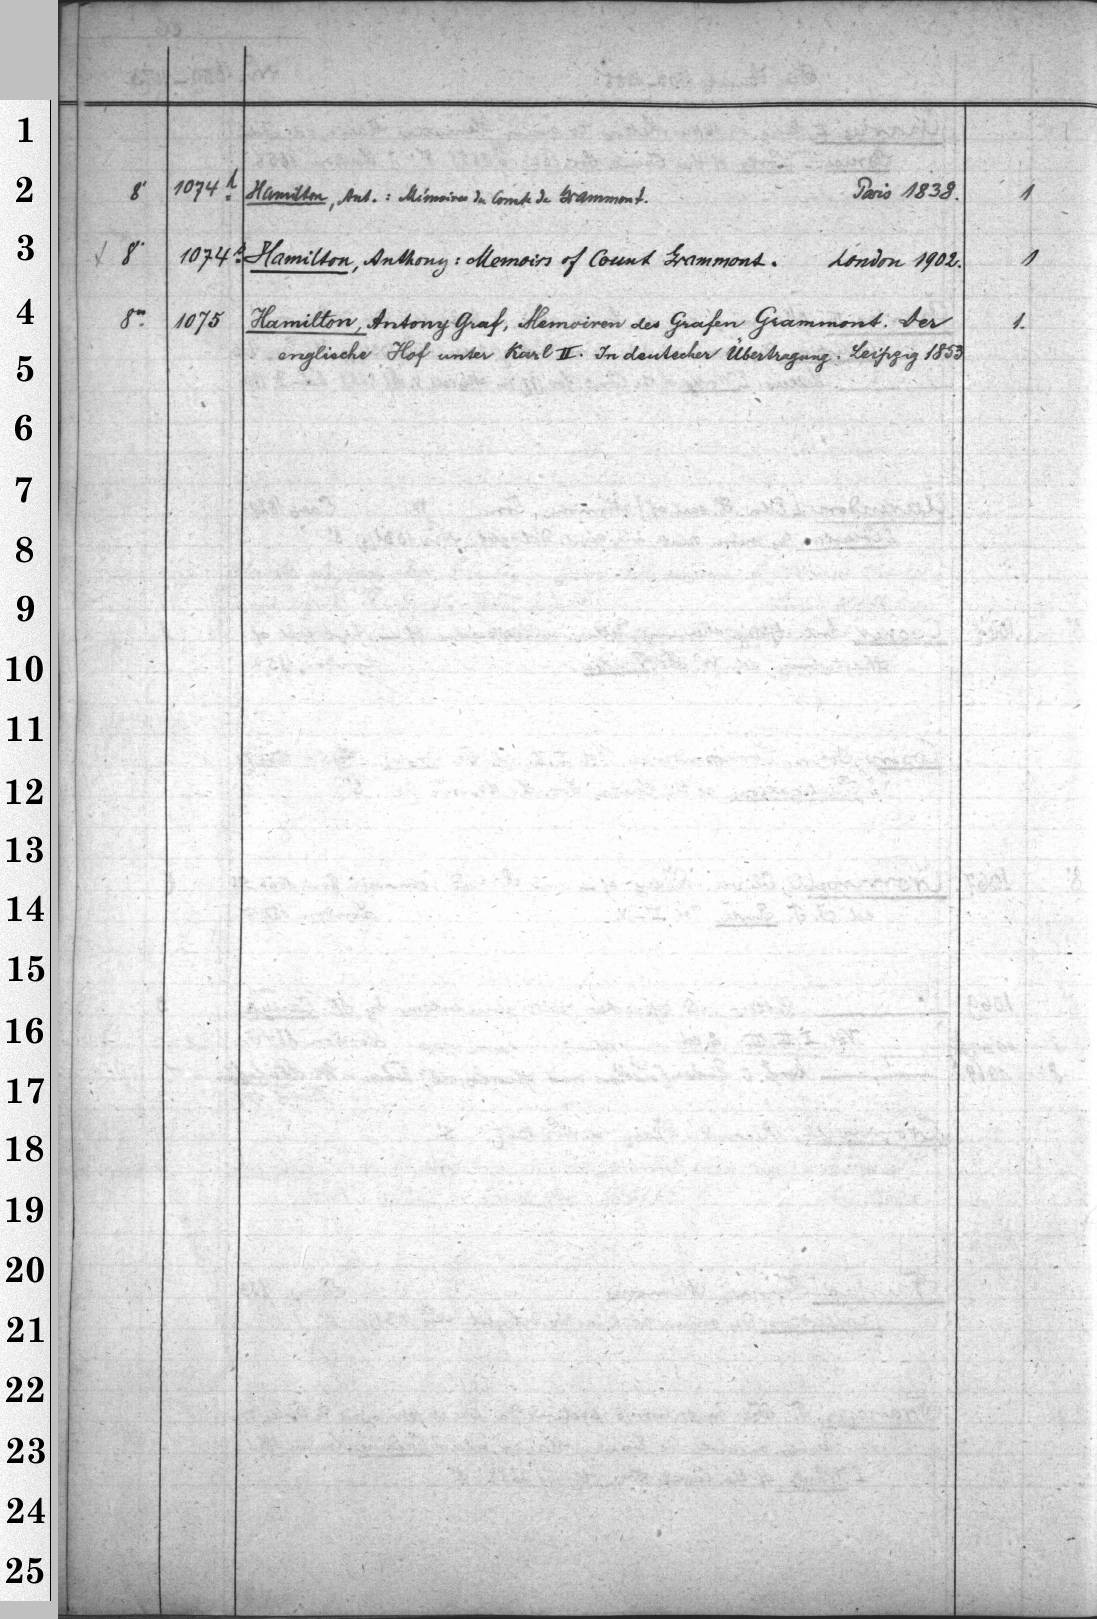 1
2 8° 1074 Hamilton, Ant. : Mémoires du Comte de Grammont. Paris 1838. 1
3 8° 1074a Hamilton, Anthony : Memoirs of Count Grammont. London 1902. 1
4 8° 1075 Hamilton, Antony Graf, Memoiren des Grafen Grammont. Der 1.
englische Hof unter Karl II. In deutscher Übertragung. Leipzig 1853
5
6
7
8
9
10
11
12
13
14
15
16
17
18
19
20
21
22
23
24
25